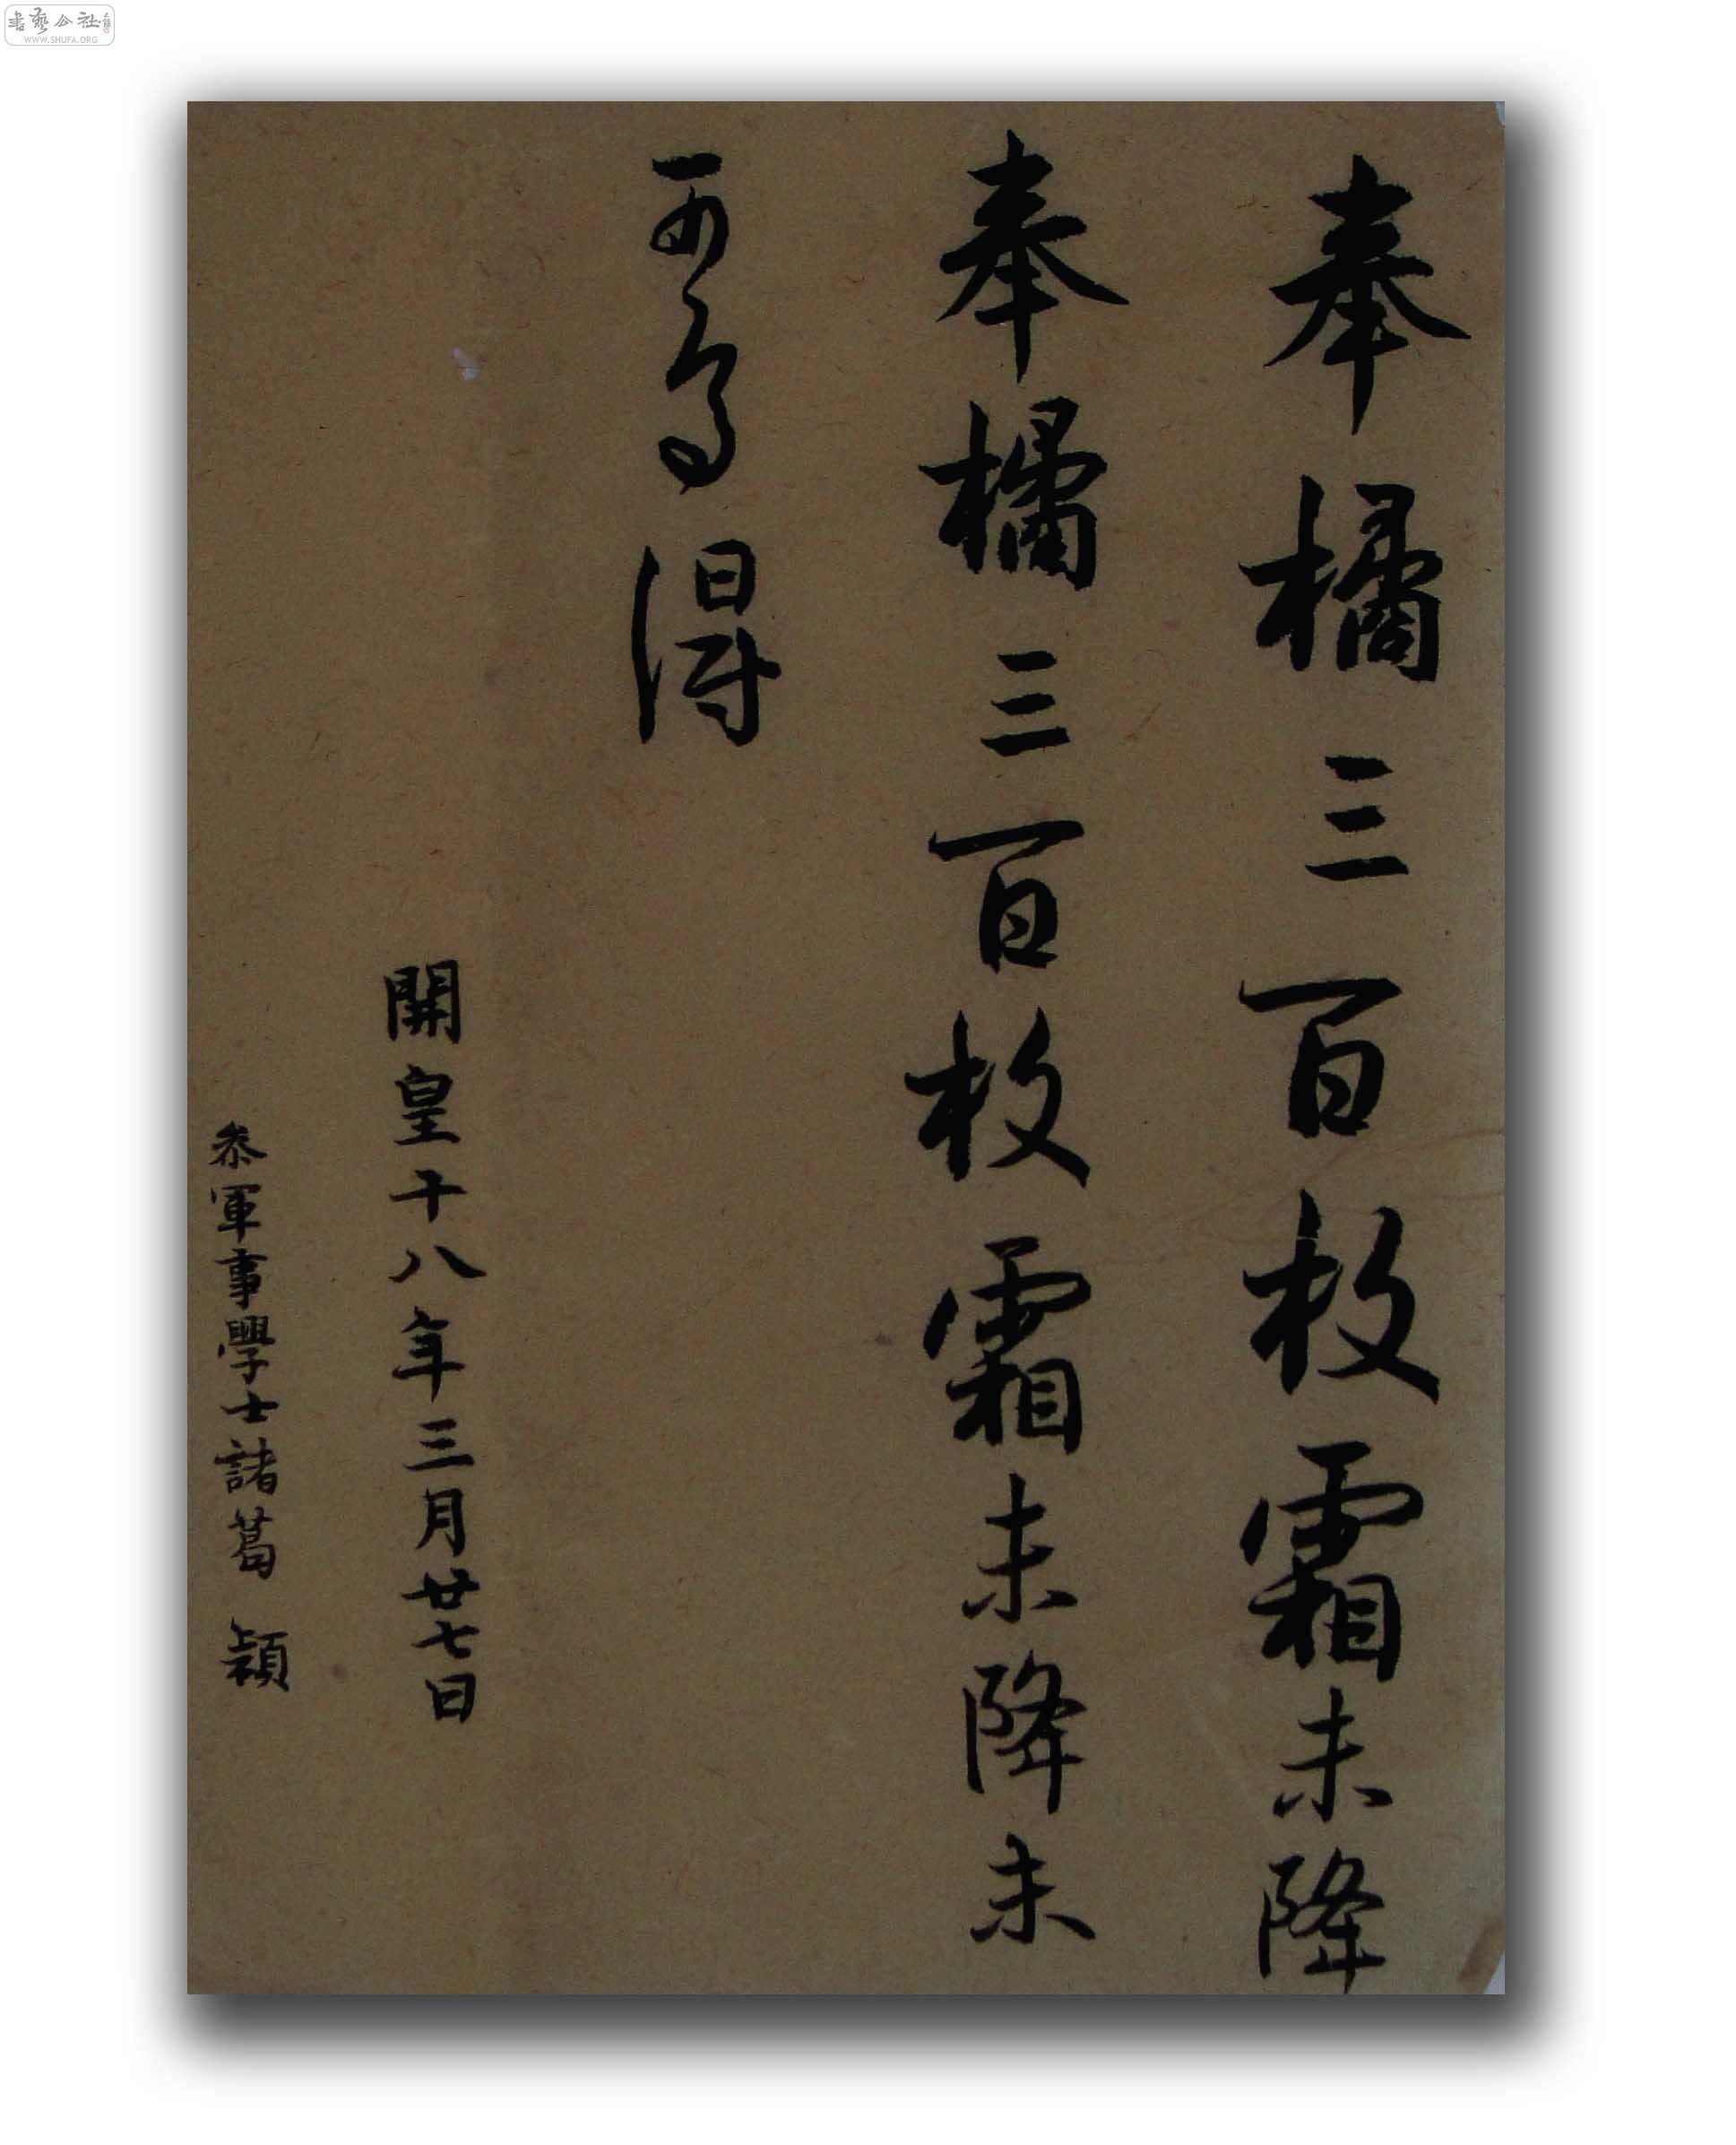 奉橘三百枚霜未降
奉橘三百枚霜未降未
可多得
開皇十八年三月廿七日
参軍事學士諸葛穎
書藝公社
WWW.SHUFA.ORG